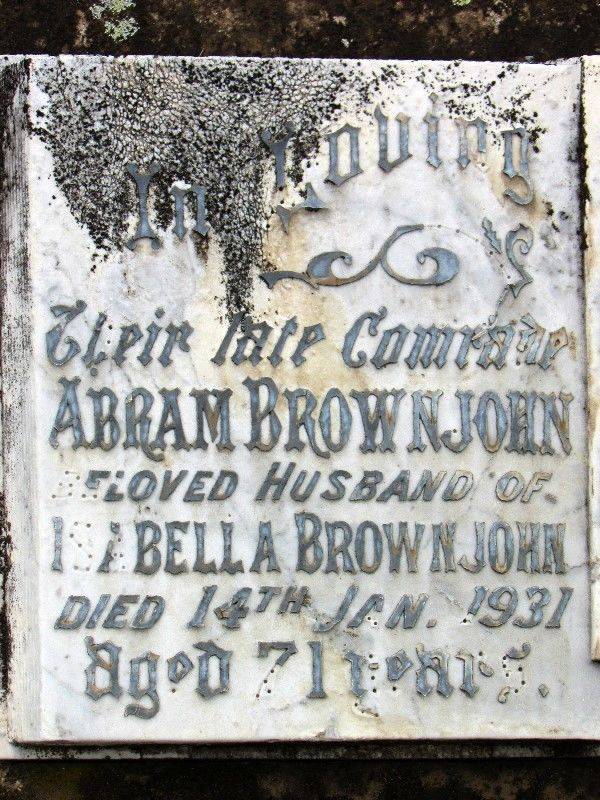 In Loving
Their late Comrade
ABRAM BROWNJOHN
BELOVED HUSBAND OF
ISABELLA BROWNJOHN
DIED 14TH JAN. 1931
Aged 71 years.